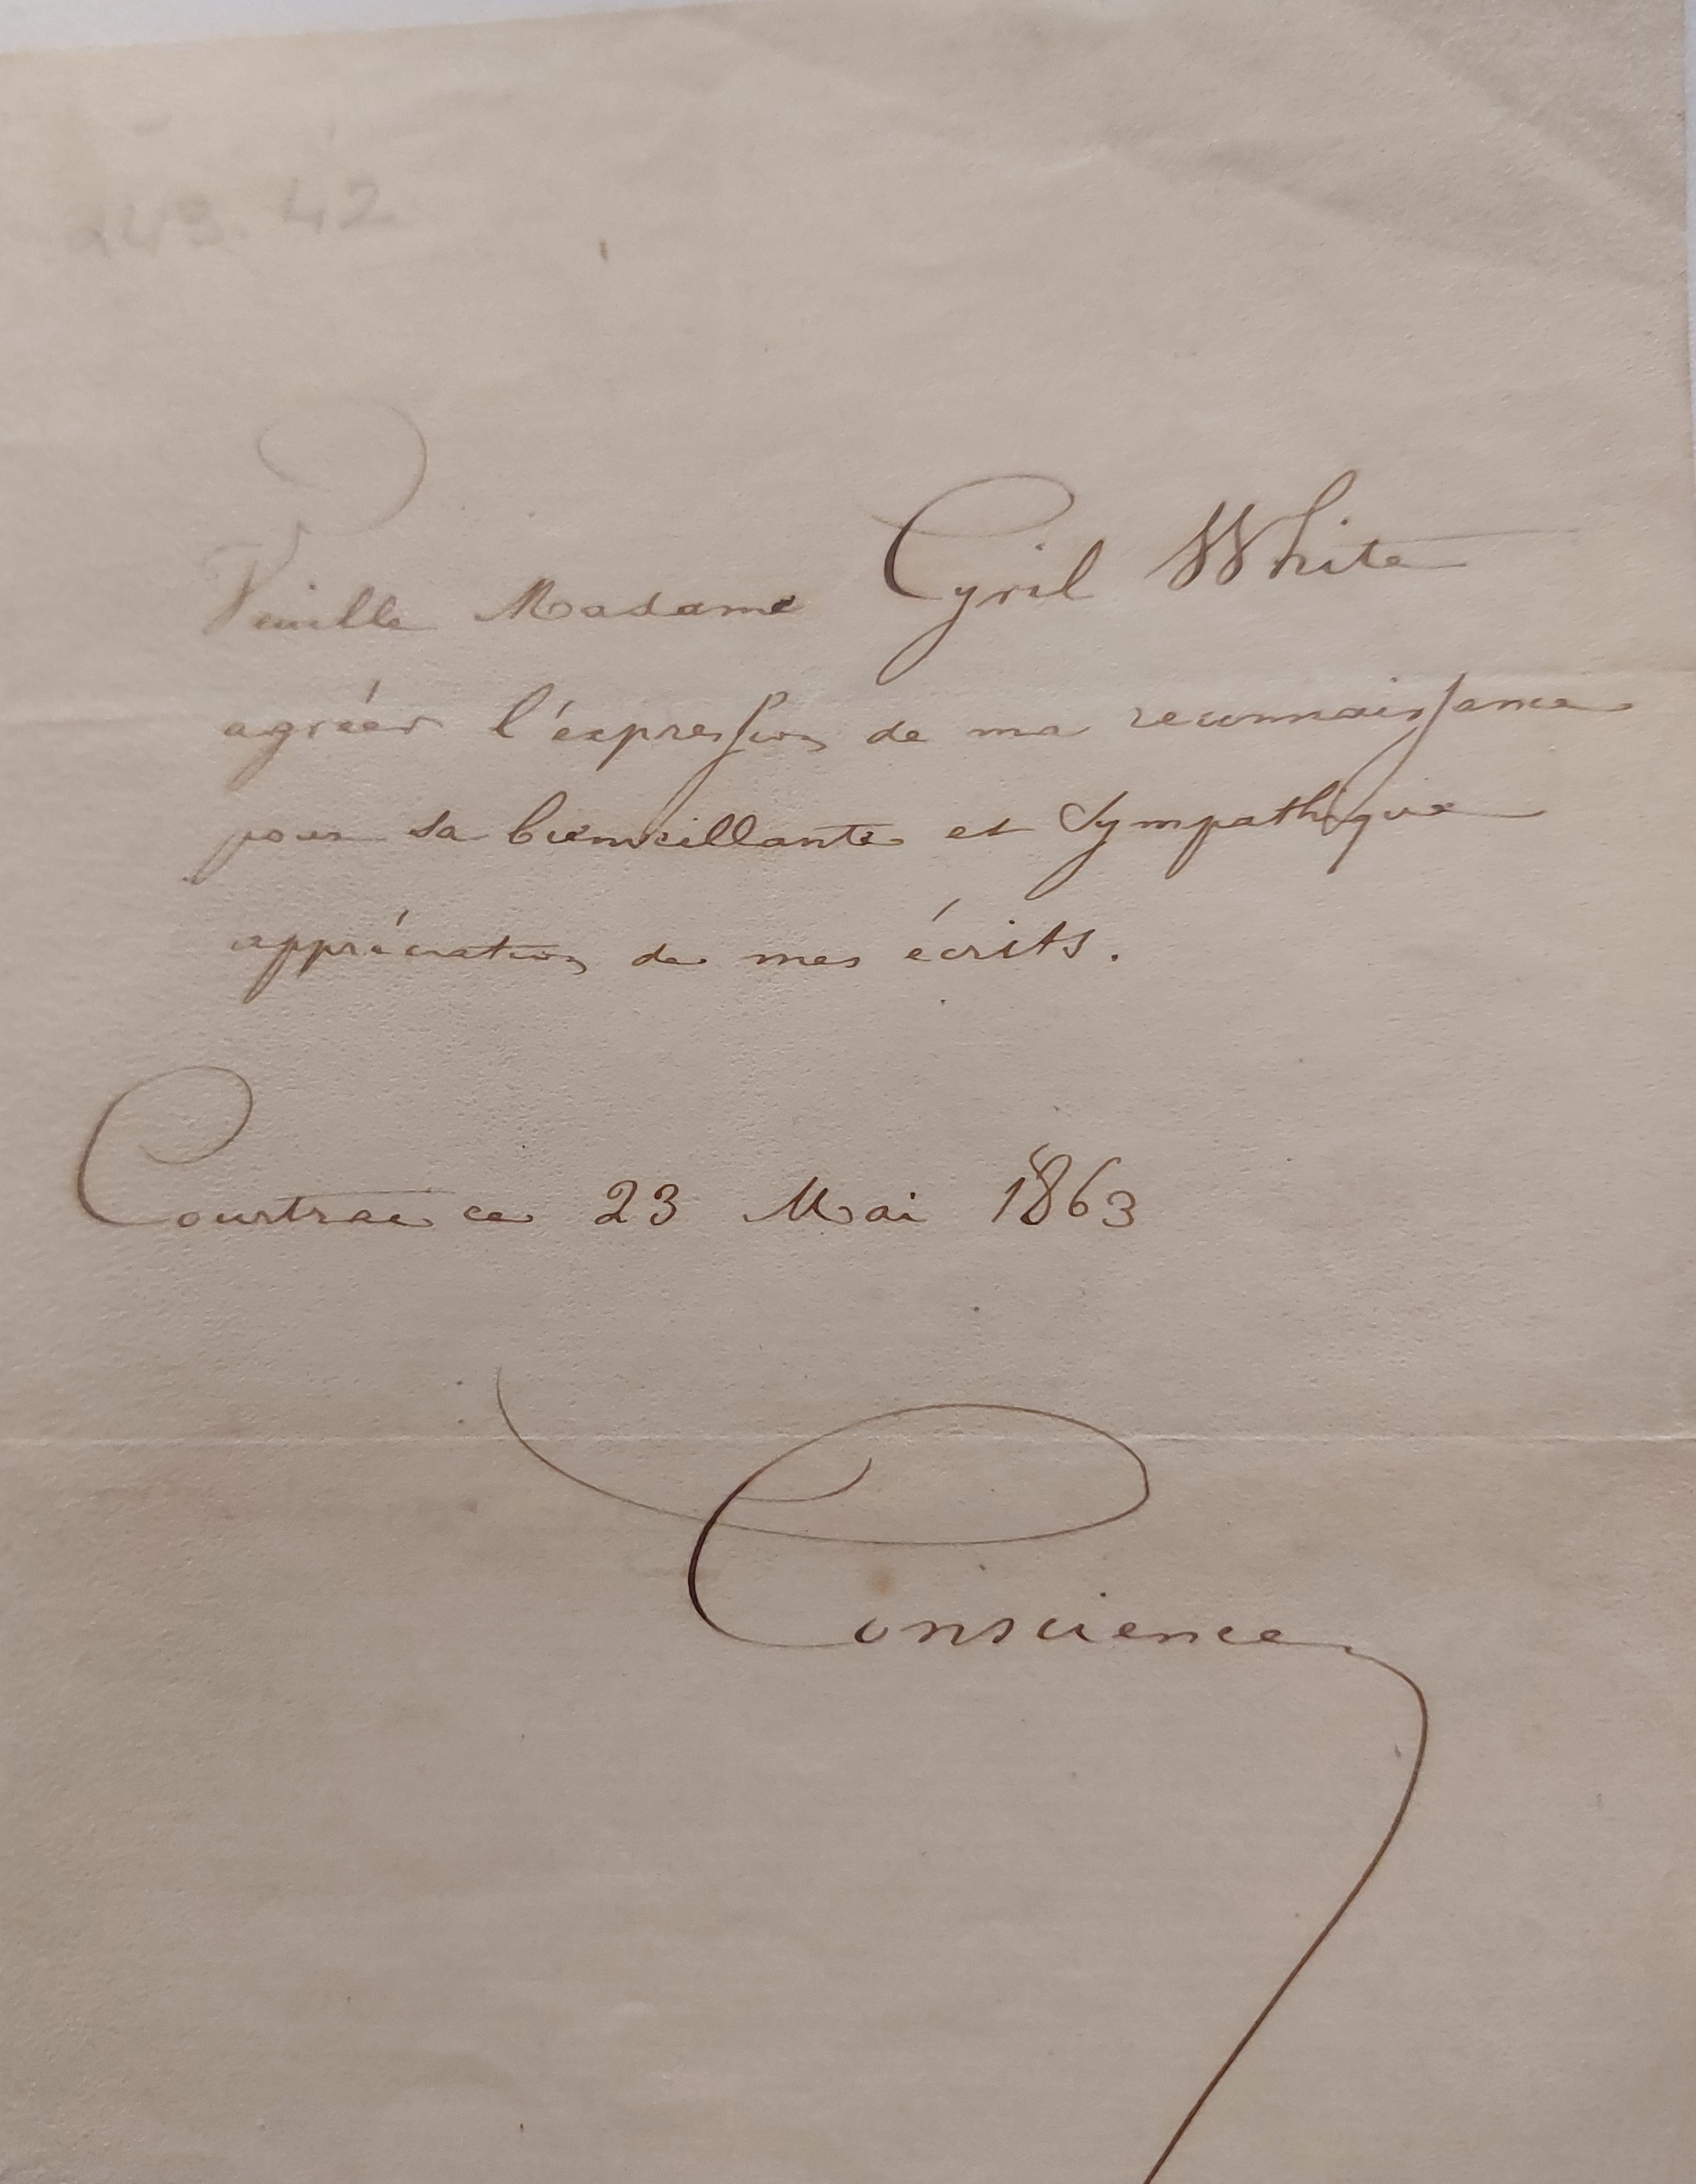 243.42
Veuille Madame Cyril White
agréer l'expression de ma reconnaissance
pour sa bienveillante et sympathique
appréciation de mes écrits.
Courtrai ce 23 Mai 1863
Conscience